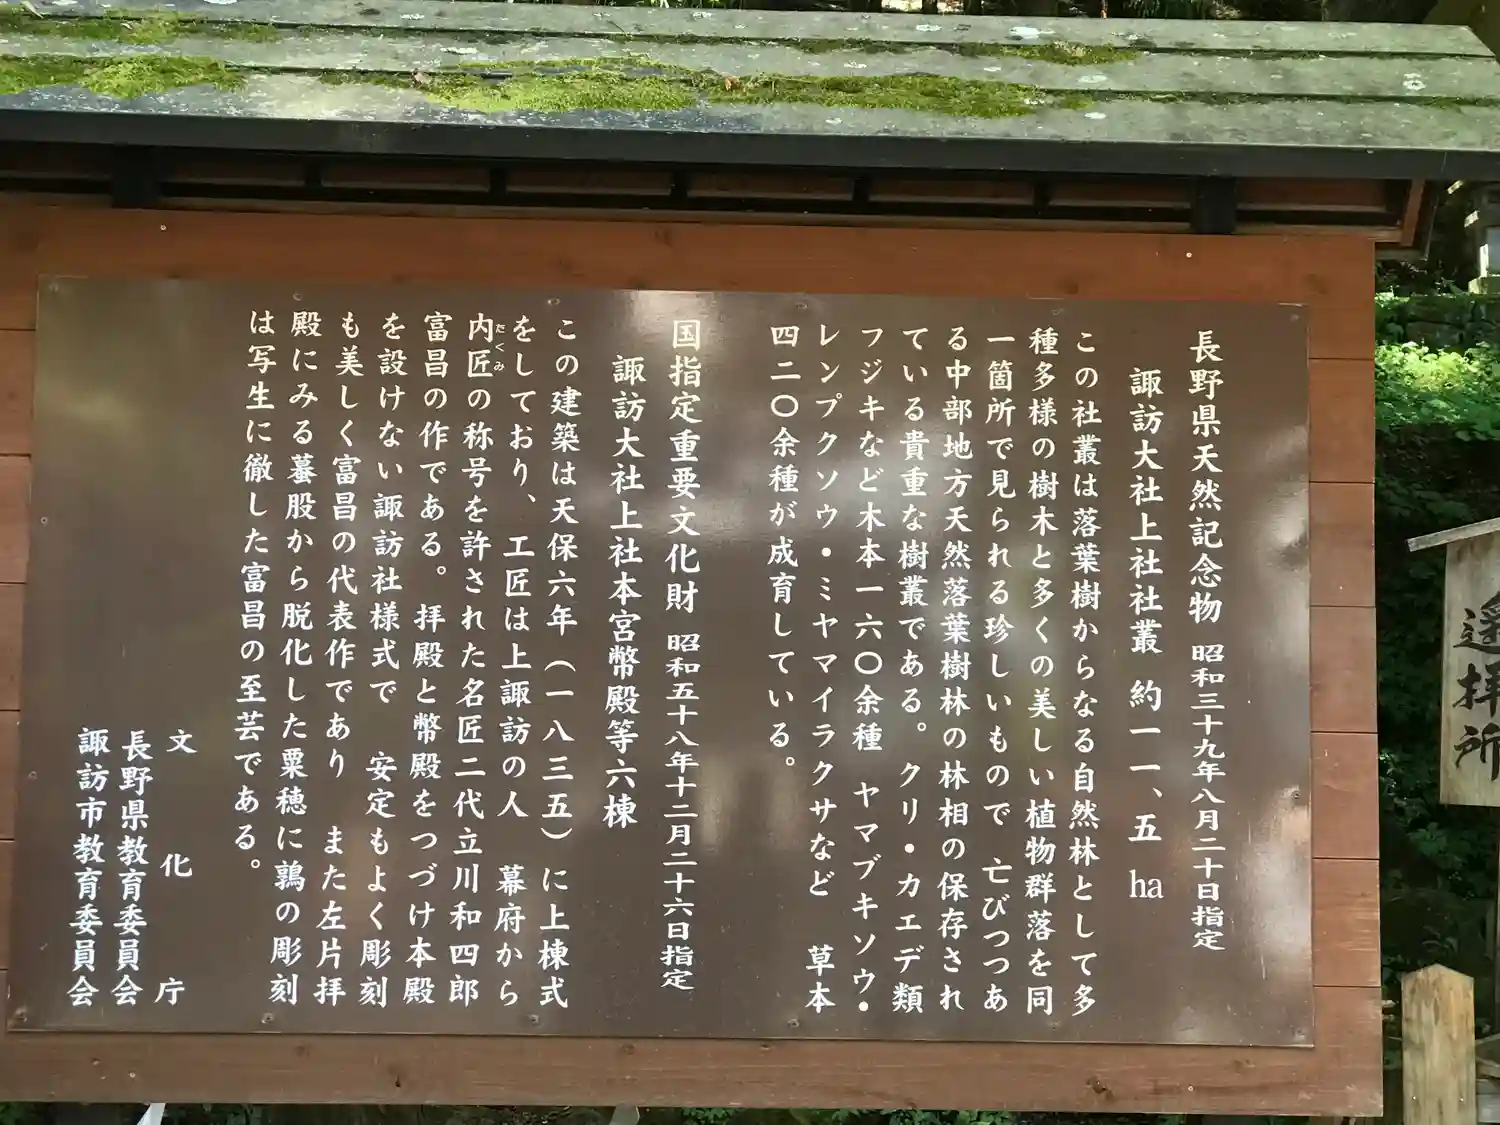 長野県天然記念物 昭和三十九年八月二十日指定
諏訪大社上社社叢 約一一、五 ha
この社叢は落葉樹からなる自然林として多
種多様の樹木と多くの美しい植物群落を同
一箇所で見られる珍しいもので 亡びつつあ
る中部地方天然落葉樹林の林相の保存され
ている貴重な樹叢である。クリ・カエデ類
フジキなど木本一六〇余種 ヤマブキソウ・
レンプクソウ・ミヤマイラクサなど 草本
四二〇余種が成育している。
国指定重要文化財 昭和五十八年十二月二十六日指定
諏訪大社上社本宮幣殿等六棟
この建築は天保六年（一八三五）に上棟式
をしており、工匠は上諏訪の人 幕府から
内匠の称号を許された名匠二代立川和四郎
たくみ
富昌の作である。拝殿と幣殿をつづけ本殿
を設けない諏訪社様式で 安定もよく彫刻
も美しく富昌の代表作であり また左片拝
殿にみる蟇股から脱化した粟穂に鶉の彫刻
は写生に徹した富昌の至芸である。
文化庁
長野県教育委員会
諏訪市教育委員会
遥拝所